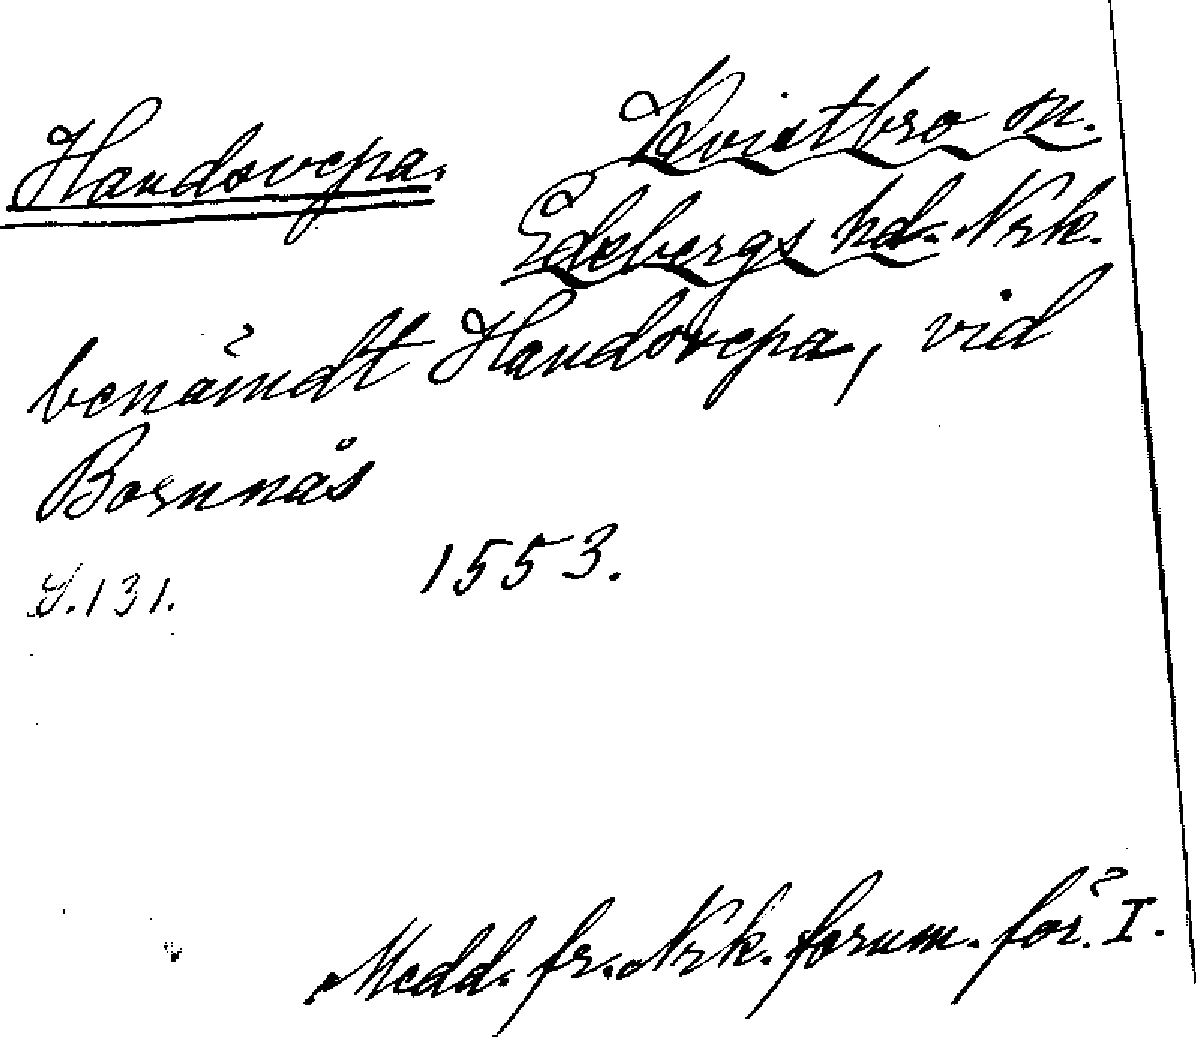 Handsvepa.
Kvistbro sn.
Edsbergs hd. Nrk.
benämdt Handsvepa, vid
Bosnnäs
S. 131.
1553.
Medd. fr. Nrk. fornm. för. I.